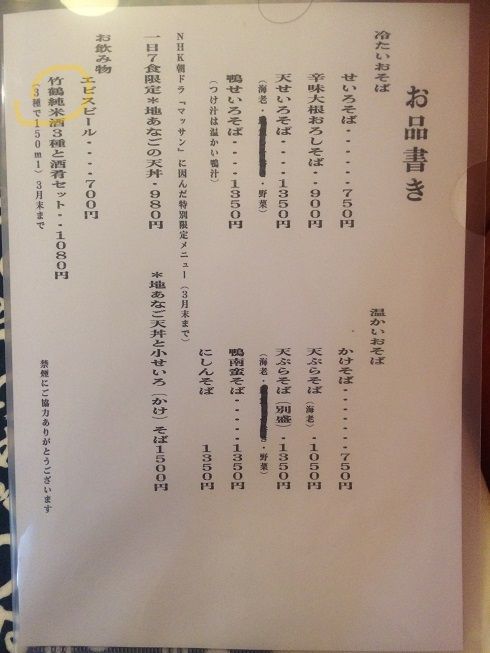 お品書き
冷たいおそば
せいろそば・・・・・・・７５０円
辛味大根おろしそば・・９００円
天せいろそば・・・・１３５０円
（海老・・野菜）
鴨せいろそば・・・・１３５０円
（つけ汁は温かい鴨汁）
温かいおそば
かけそば・・・・・・・７５０円
天ぷらそば（海老）・１０５０円
天ぷらそば（別盛）・１３５０円
（海老・・野菜）
鴨南蛮そば・・・・・１３５０円
にしんそば　１３５０円
ＮＨＫ朝ドラ『マッサン』に因んだ特別限定メニュー（３月末まで）
一日７食限定＊地あなごの天丼・９８０円
＊地あなご天丼と小せいろ（かけ）そば１５００円
お飲み物
エビスビール・・・・７００円
竹鶴純米酒３種と酒肴セット・・１０８０円
（３種で１５０ｍｌ）３月末まで
禁煙にご協力ありがとうございます